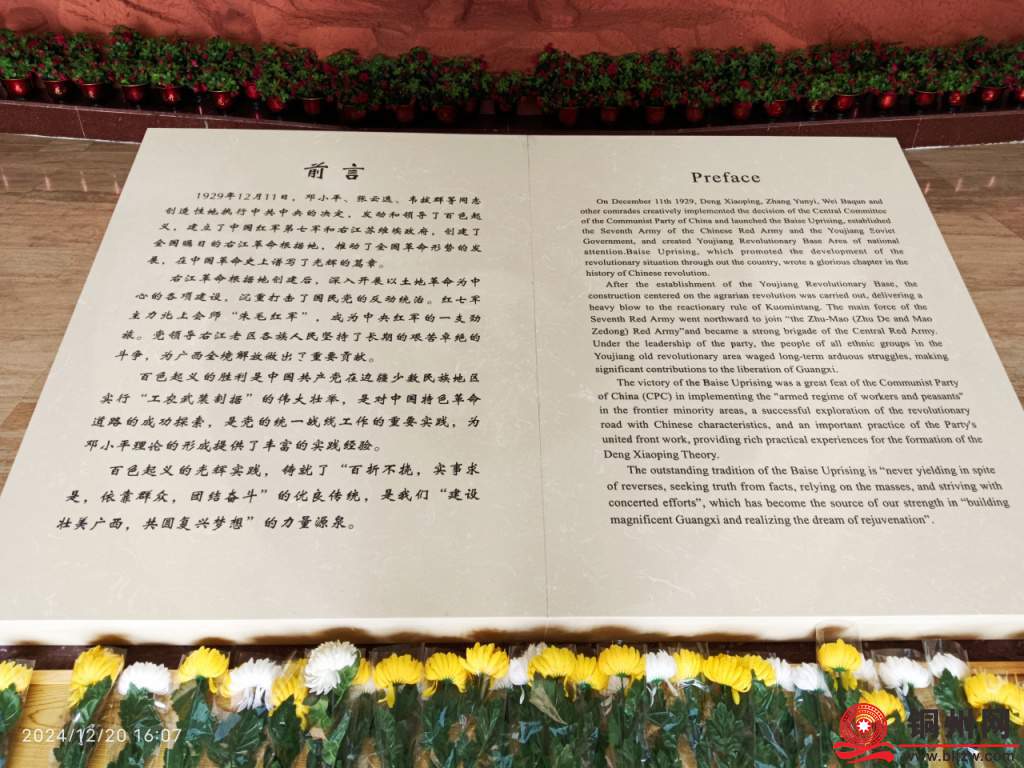 前言
1929年12月11日，邓小平、张云逸、韦拔群等同志
创造性地执行中共中央的决定，发动和领导了百色起
义，建立了中国红军第七军和右江苏维埃政府，创建了
全国瞩目的右江革命根据地，推动了全国革命形势的发
展，在中国革命史上谱写了光辉的篇章。
右江革命根据地创建后，深入开展以土地革命为中
心的各项建设，沉重打击了国民党的反动统治。红七军
主力北上会师“朱毛红军”，成为中央红军的一支劲
旅。党领导右江老区各族人民坚持了长期的艰苦卓绝的
斗争，为广西全境解放做出了重要贡献。
百色起义的胜利是中国共产党在边疆少数民族地区
实行“工农武装割据”的伟大壮举，是对中国特色革命
道路的成功探索，是党的统一战线工作的重要实践，为
邓小平理论的形成提供了丰富的实践经验。
百色起义的光辉实践，铸就了“百折不挠，实事求
是，依靠群众，团结奋斗”的优良传统，是我们“建设
壮美广西，共圆复兴梦想”的力量源泉。
Preface
On December 11th 1929, Deng Xiaoping, Zhang Yunyi, Wei Baqun and
other comrades creatively implemented the decision of the Central Committee
of the Communist Party of China and launched the Baise Uprising, established
the Seventh Army of the Chinese Red Army and the Youjiang Soviet
Government, and created Youjiang Revolutionary Base Area of national
attention.Baise Uprising, which promoted the development of the
revolutionary situation through out the country, wrote a glorious chapter in the
history of Chinese revolution.
After the establishment of the Youjiang Revolutionary Base, the
construction centered on the agrarian revolution was carried out, delivering a
heavy blow to the reactionary rule of Kuomintang. The main force of the
Seventh Red Army went northward to join “the Zhu-Mao (Zhu De and Mao
Zedong) Red Army”and became a strong brigade of the Central Red Army.
Under the leadership of the party, the people of all ethnic groups in the
Youjiang old revolutionary area waged long-term arduous struggles, making
significant contributions to the liberation of Guangxi.
The victory of the Baise Uprising was a great feat of the Communist Party
of China (CPC) in implementing the “armed regime of workers and peasants”
in the frontier minority areas, a successful exploration of the revolutionary
road with Chinese characteristics, and an important practice of the Party's
united front work, providing rich practical experiences for the formation of the
Deng Xiaoping Theory.
The outstanding tradition of the Baise Uprising is “never yielding in spite
of reverses, seeking truth from facts, relying on the masses, and striving with
concerted efforts”, which has become the source of our strength in “building
magnificent Guangxi and realizing the dream of rejuvenation”.
2024/12/20 16:07
铜州网
www.bhzw.com